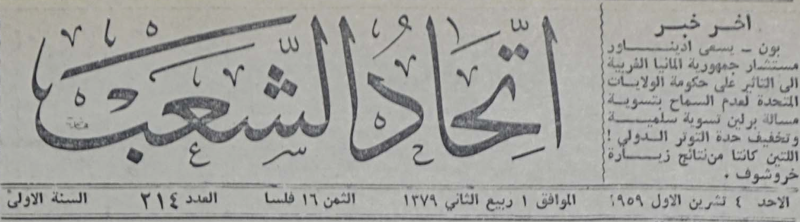 اخر خبر
بون - يسعى اديناور
مستشار جمهورية المانيا الغربية
الى التاثير على حكومة الولايات
المتحدة لعدم السماح بتسوية
مسالة برلين تسوية سلمية
وتخفيف حدة التوتر الدولي !
اللتين كانتا من نتائج زيارة
خروشوف .
اتحاد الشعب
الاحد ٤ تشرين الاول ١٩٥٩ الموافق ١ ربيع الثاني ١٣٧٩ الثمن ١٦ فلسا العدد ٢١٤ السنة الاولى